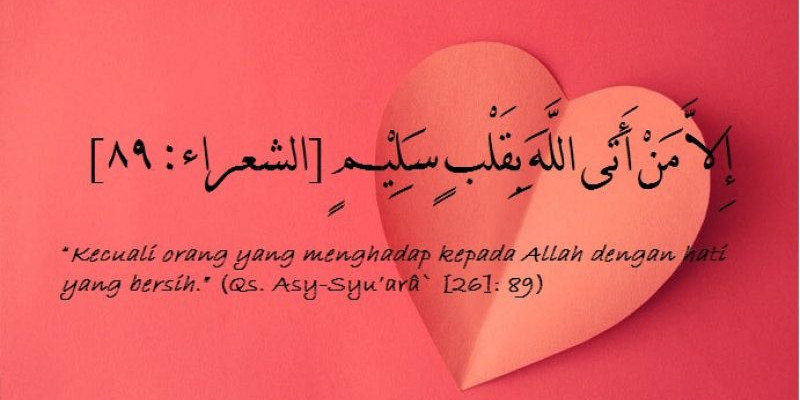 إِلاَّ مَنْ أَتَى اللَّهَ بِقَلْبٍ سَلِيْمٍ [الشعراء: ٨٩]
“Kecuali orang yang menghadap kepada Allah dengan hati
yang bersih.” (Qs. Asy-Syu’arâ` [26]: 89)